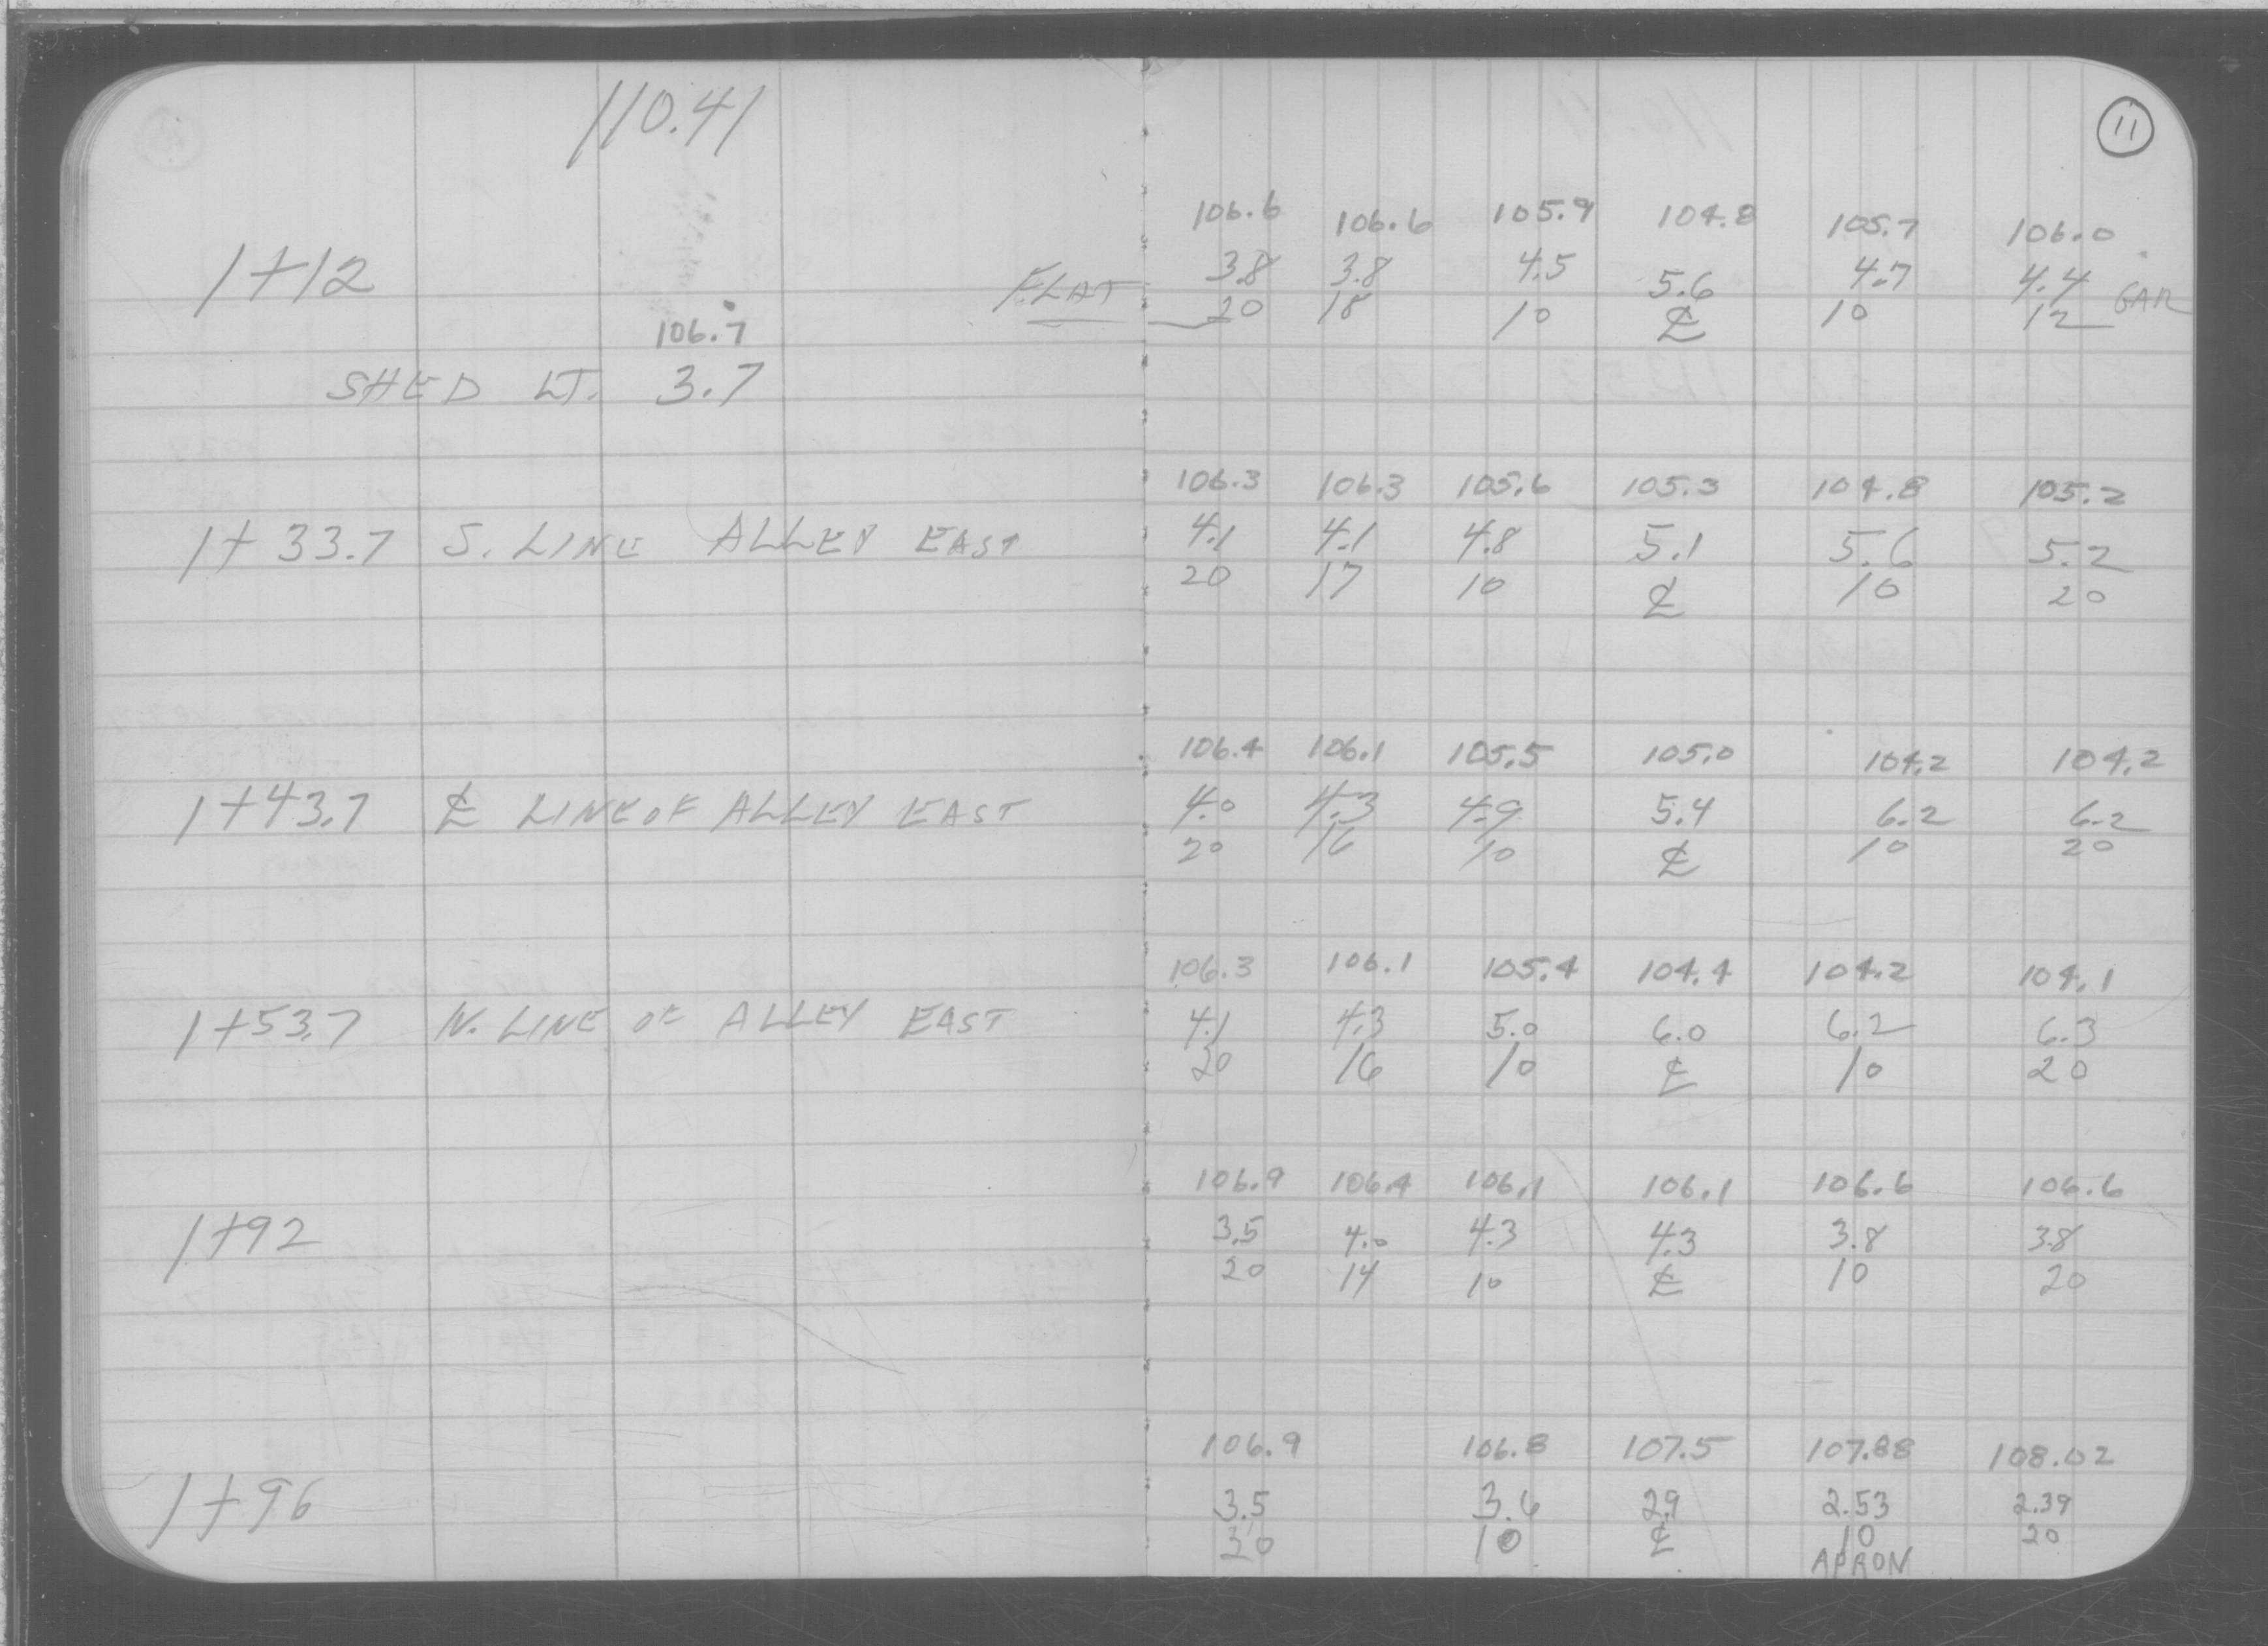 110.41
11
106.6 106.6 105.9 104.8 105.7 106.0
1+12 FLAT 3.8 3.8 4.5 5.6 4.7 4.4 GAR
20 18 10 ℄ 10 12
106.7
SHED LT. 3.7
106.3 106.3 105.6 105.3 104.8 105.2
1+33.7 S. LINE ALLEY EAST 4.1 4.1 4.8 5.1 5.6 5.2
20 17 10 ℄ 10 20
106.4 106.1 105.5 105.0 104.2 104.2
1+43.7 ℄ LINE OF ALLEY EAST 4.0 4.3 4.9 5.4 6.2 6.2
20 16 10 ℄ 10 20
106.3 106.1 105.4 104.4 104.2 104.1
1+53.7 N. LINE OF ALLEY EAST 4.1 4.3 5.0 6.0 6.2 6.3
20 16 10 ℄ 10 20
106.9 106.4 106.1 106.1 106.6 106.6
1+92 3.5 4.0 4.3 4.3 3.8 3.8
20 14 10 ℄ 10 20
106.9 106.8 107.5 107.88 108.02
1+96 3.5 3.6 2.9 2.53 2.39
10 ℄ 10 20
APRON